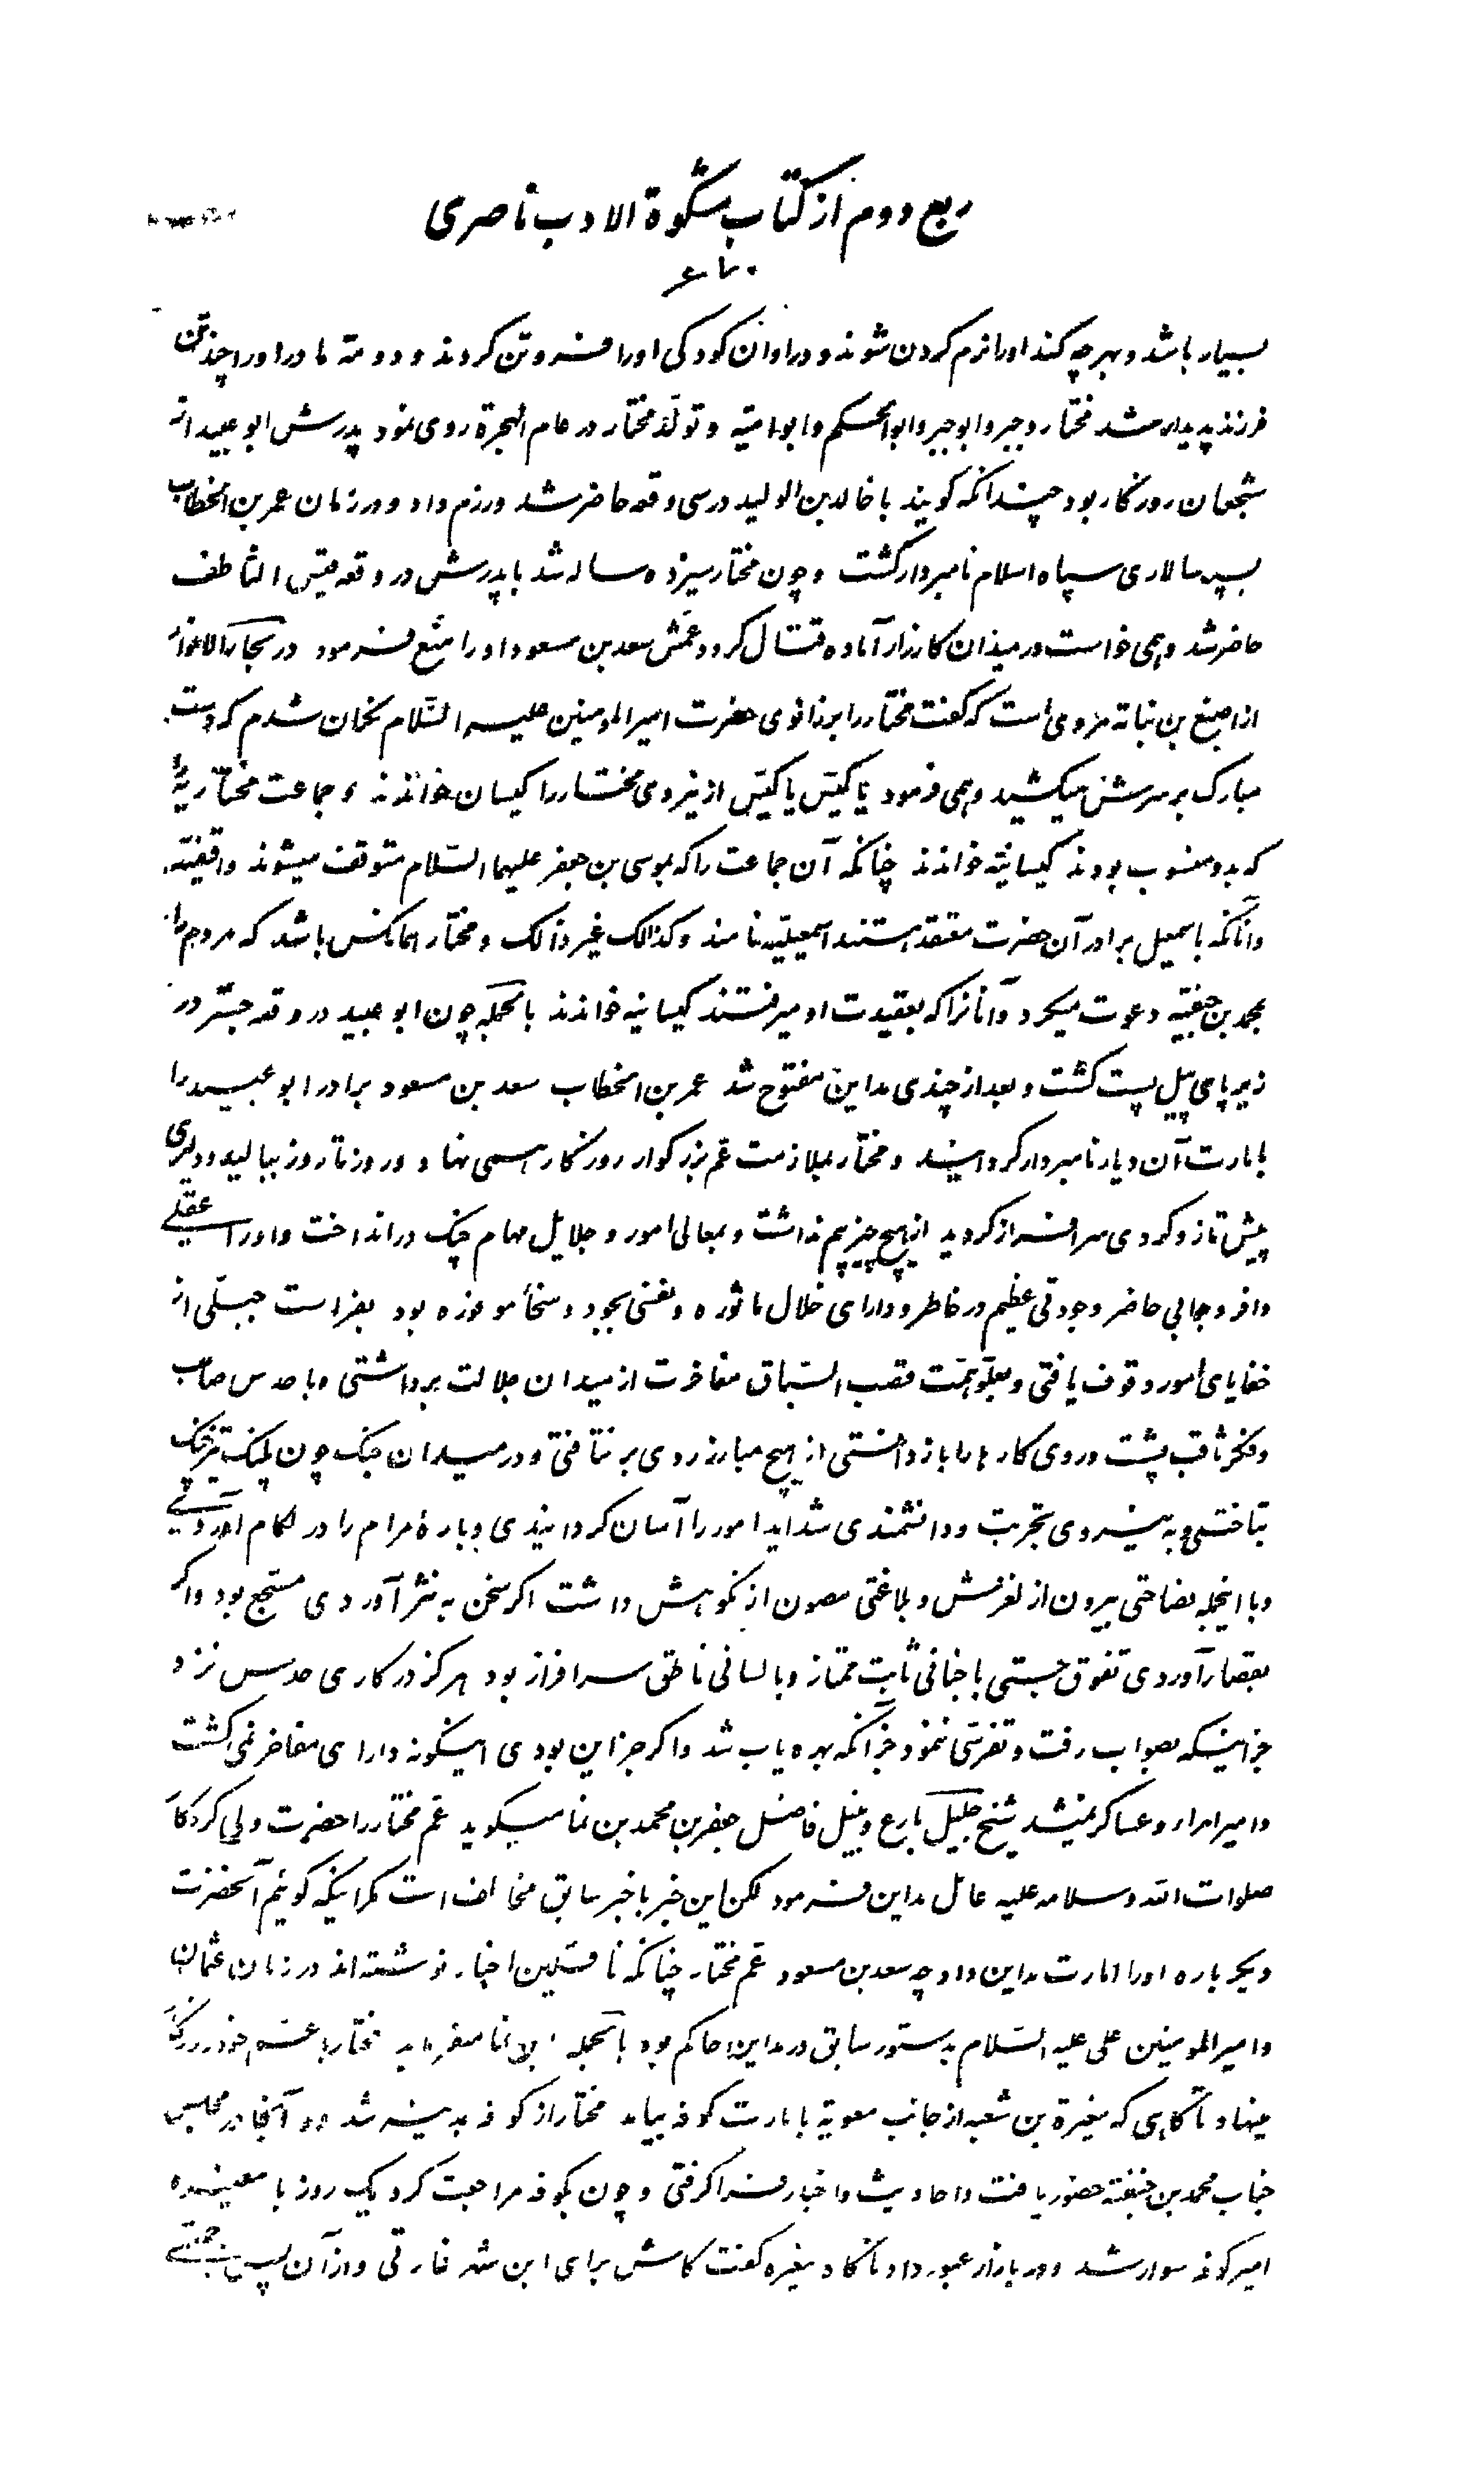 ربع دوم از کتاب مشکوة الادب ناصری
۶۷۰
بسیار باشد و بهر چه کند او را نرم گردن شوند و در اوان کودکی او را فروتن گردند و دومة مادر او را چند تن
فرزند پدیدار شد مختار و جبر و ابو جبر و ابو الحکم و ابو امیّه و تولّد مختار در عام الهجرة روی نمود پدرش ابو عبید از
شجعان روزگار بود چندانکه گویند با خالد بن الولید در سی وقعه حاضر شد و رزم داد و در زمان عمر بن الخطاب
بسپه سالاری سپاه اسلام نامبردار گشت و چون مختار سیزده ساله شد با پدرش در وقعه قیس الناطف
حاضر شد و همی خواست در میدان کارزار آماده قتال گردد عمّش سعد بن مسعود او را منع فرمود در بحار الانوار
از اصبغ بن نباته مروی است که گفت مختار را بر زانوی حضرت امیر المومنین علیه السّلام نگران شدم که دست
مبارک بر سرش میکشید و همی فرمود یا کیّس یا کیّس از ینروی مختار را کیسان خواندند و جماعت مختاریّه
که بدو منسوب بودند کیسانیّه خواندند چنانکه آن جماعت را که بموسی بن جعفر علیهما السّلام متوقف میشوند واقفیّه
و آنانکه باسمعیل برادر آن حضرت معتقد هستند اسمعیلیّه نامند و کذالک غیر ذالک و مختار همانکس باشد که مردم را
بمحمد بن حنفیّه دعوت میکرد و آنانرا که بعقیدت او میرفتند کیسانیه خواندند بالجمله چون ابو عبید در وقعه جسر در
زیر پای پیل پست گشت و بعد از چندی مداین مفتوح شد عمر بن الخطاب سعد بن مسعود برادر ابو عبید را
بامارت آن دیار نامبردار گردانید و مختار بملازمت عمّ بزرگوار روزگار همی نهاد و روز تا روز ببالید و دلیری
پیش تاز و گردی سرافراز گردید از هیچ چیز بیم نداشت و بمعالی امور و جلایل مهام چنگ در انداخت و او را عقلی
وافر و جوابی حاضر و جودتی عظیم در خاطر و دارای خلال ماثوره و نفسی بجود و سخا موفوره بود بفراست جبلّی از
خفایای امور وقوف یافتی و بعلوّ همّت قصب السّباق مفاخرت از میدان جلالت برداشتی و با حدس صائب
و فکر ثاقب پشت و روی کارها را باز دانستی از هیچ مبارز روی برنتافتی و در میدان جنگ چون پلنگ تیز چنگ
بتاختی و به نیروی تجربت و دانشمندی شداید امور را آسان گردانیدی و بارۀ مرام را در لگام آوردی
و با اینجمله فصاحتی بیرون از لغزش و بلاغتی مصون از نکوهش داشت اگر سخن به نثر آوردی مسجع بود و اگر
بقصار آوردی تفوق جستی با جنانی ثابت ممتاز و با لسانی ناطق سرافراز بود هرگز در کاری حدس نزد
جز اینکه بصواب رفت و تفرّسی ننمود جز آنکه بهره یاب شد و اگر جز این بودی اینگونه دارای مفاخر نمی گشت
و امیر امراء و عساکر نمیشد شیخ جلیل بارع و نبیل فاضل جعفر بن محمد بن نما میگوید عمّ مختار را حضرت ولی کردگار
صلوات الله و سلامه علیه عامل مداین فرمود لکن این خبر با خبر سابق مخالف است مگر اینکه گوئیم آنحضرت
دیگر باره او را امارت مداین داد چه سعد بن مسعود عمّ مختار چنانکه ناقلین اخبار نوشته اند در زمان عثمان
و امیر المومنین علی علیه السّلام بدستور سابق در مداین حاکم بود بالجمله ابن نما میفرماید مختار با عمّ خود روزگار
مینهاد تا گاهی که مغیرة بن شعبه از جانب معویة بامارت کوفه بیامد مختار از کوفه بمدینه شد و در آنجا در مجلس
جناب محمد بن حنفیّه حضور یافت و احادیث و اخبار فرا گرفتی و چون بکوفه مراجعت کرد یک روز با مغیره
امیر کوفه سوار شد و در بازار عبور داد ناگاه مغیره گفت کاش برای این شهر غارتی و از آن پس جمعی